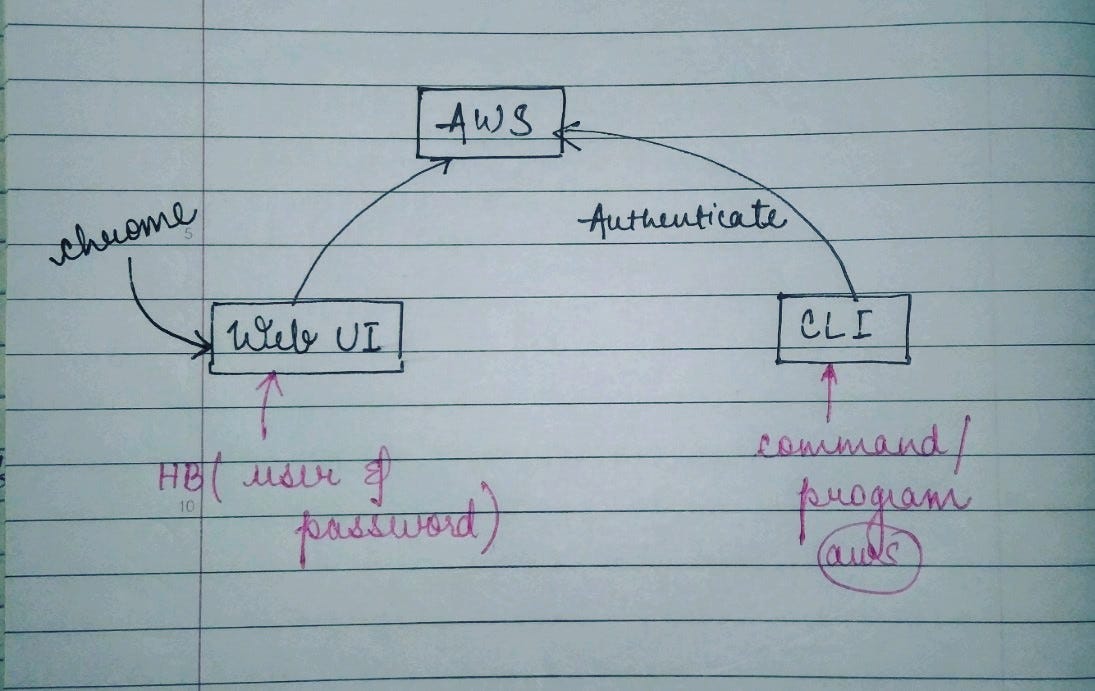 AWS
Authenticate
chrome
5
Web UI
CLI
command/
HB( user &
program
10
password)
aws